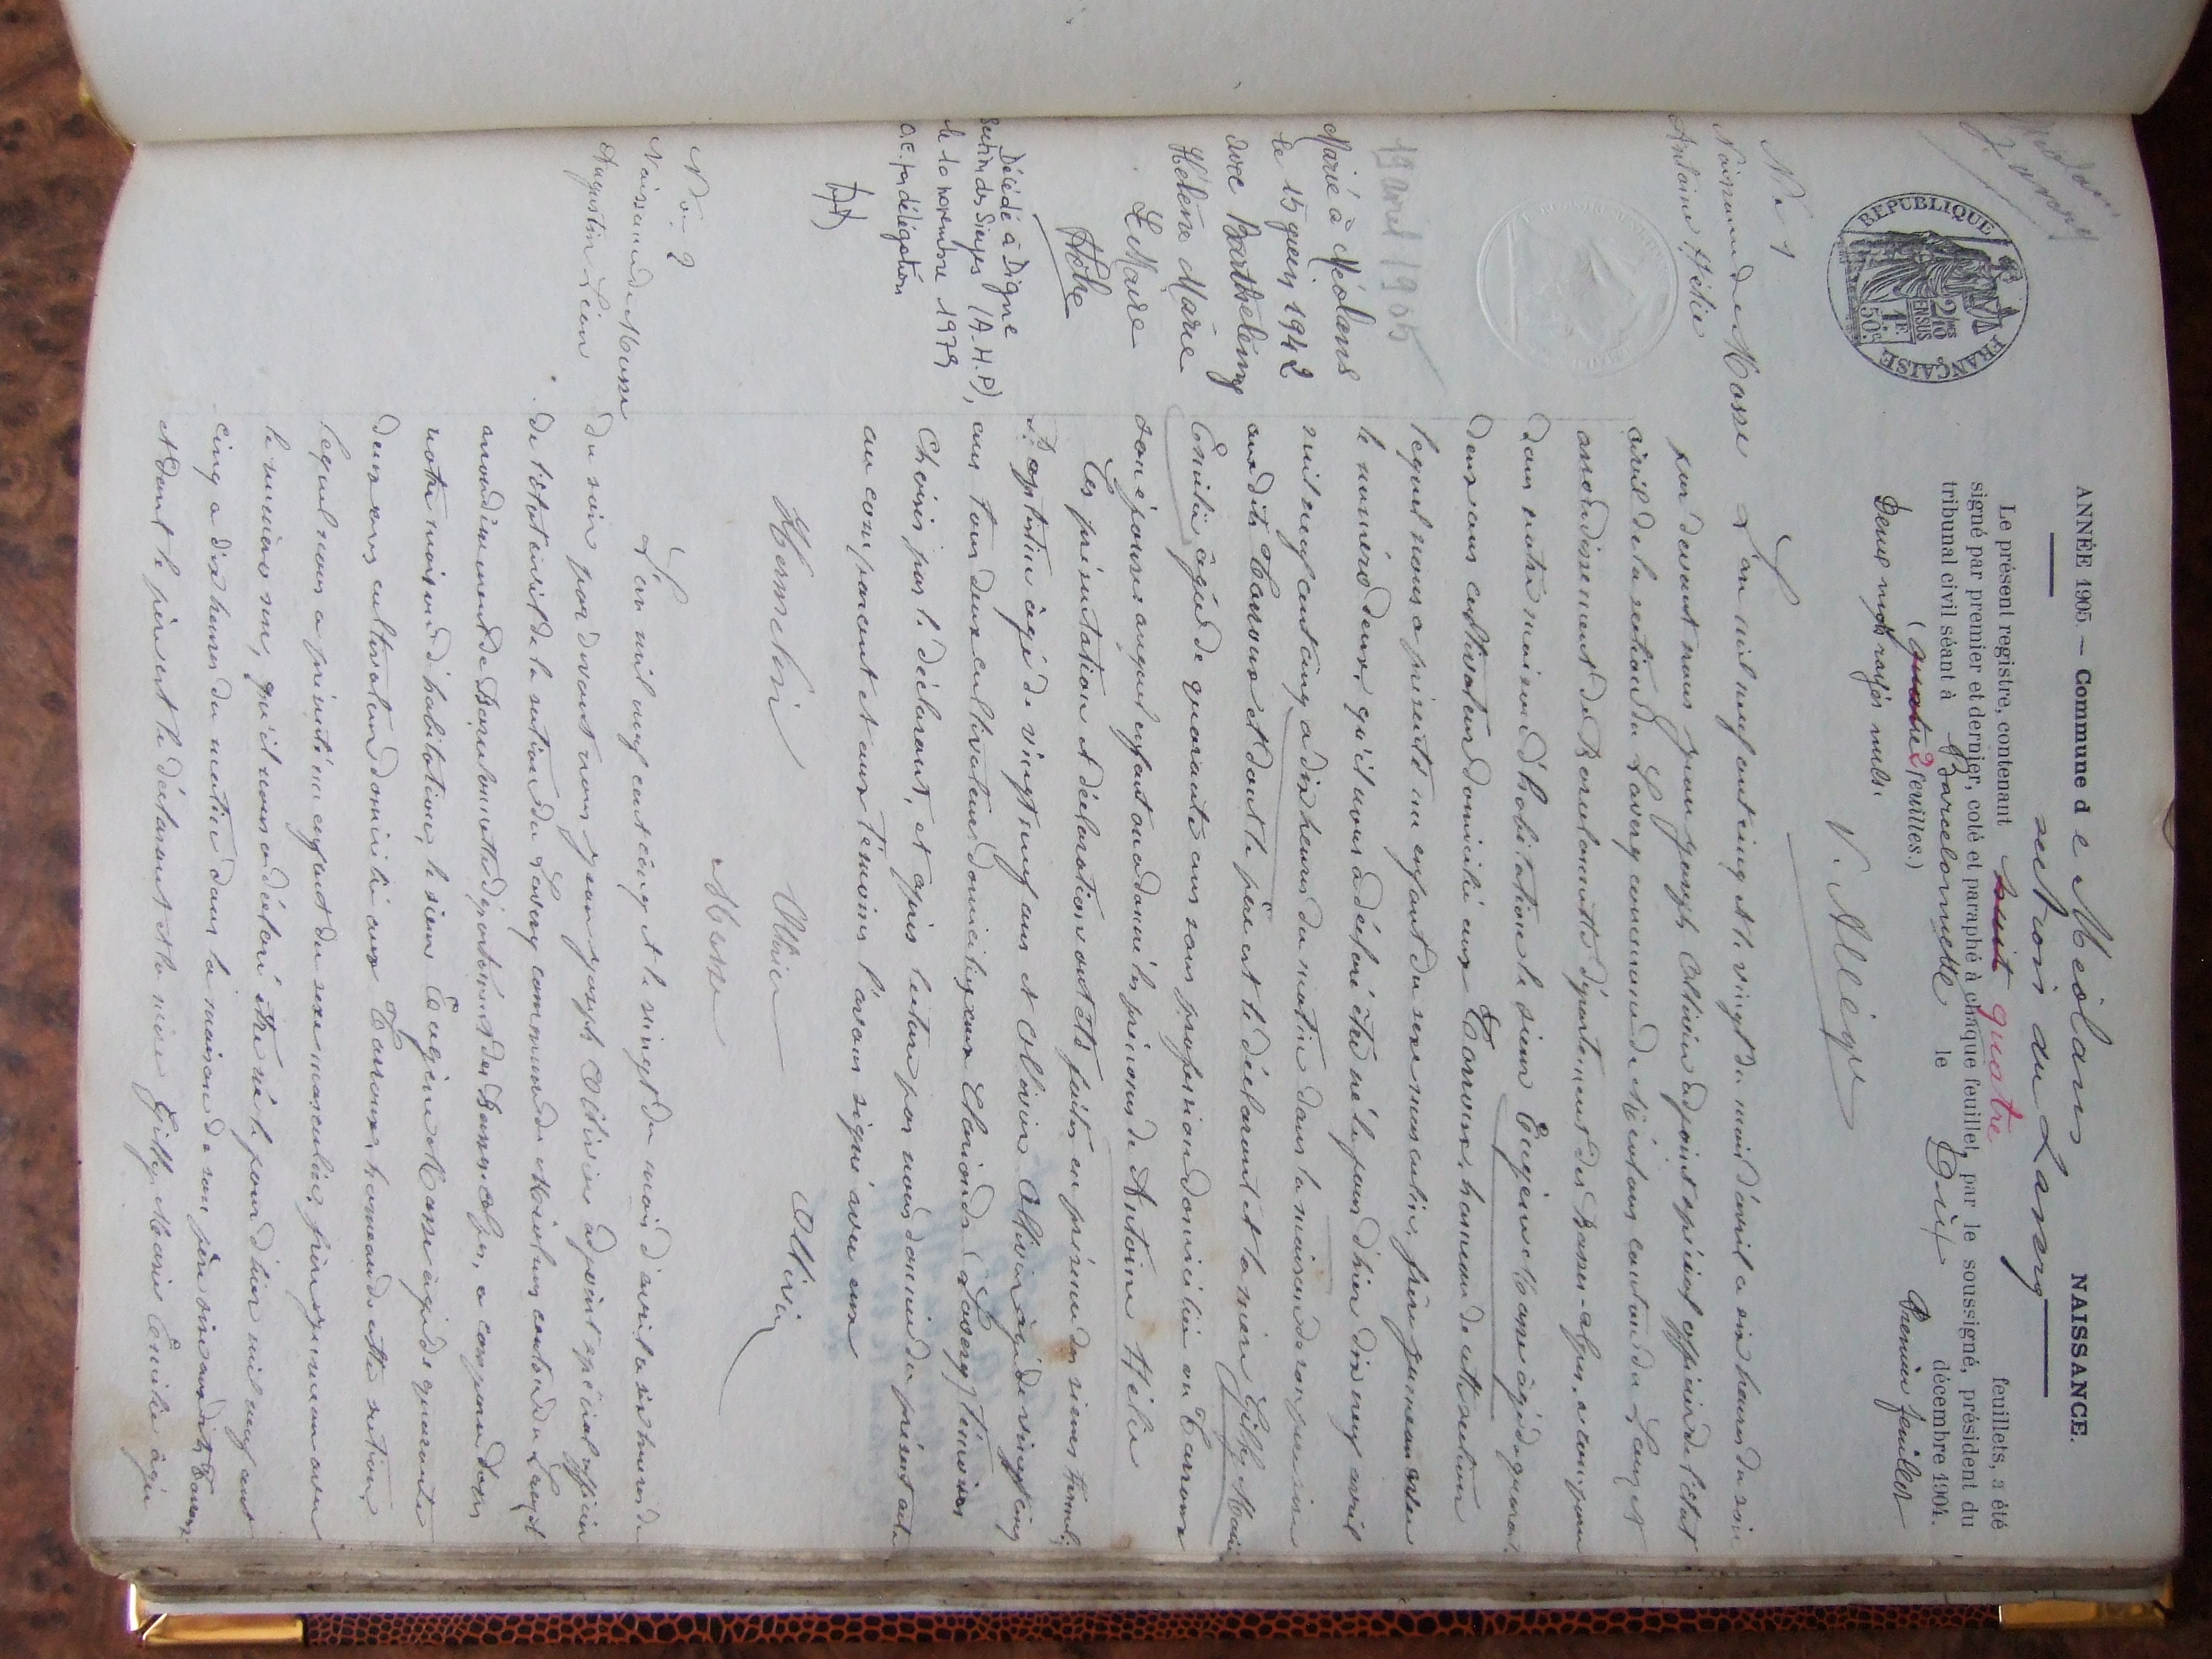 ANNÉE 1905. — Commune de Méolans NAISSANCE.
section du Laverq
Le présent registre, contenant huit quatre feuillets, a été
signé par premier et dernier, coté et paraphé à chaque feuillet, par le soussigné, président du
tribunal civil séant à Barcelonnette le Dix décembre 1904.
(quatre 2 feuilles.) Premier feuillet
Deux mots rayés nuls.
RÉPUBLIQUE FRANÇAISE
2/10 EN SUS
1F 50c
N° 1
Naissance de Masse
Antoine Hélie
19 avril 1905
Marié à Méolans
le 15 juin 1942
avec Barthélemy
Hélène Marie
Le Maire
Décédé à Digne
section des Sieyes (A.H.P),
le 10 novembre 1979
O.E. par délégation
L'an mil neuf cent cinq et le vingt du mois d'avril a six heures du soir
par devant nous Jean Joseph Ollivier adjoint spécial officier de l'état
civil de la section du Laverq commune de Méolans canton du Lauzet
arrondissement de Barcelonnette département des Basses-alpes, a comparu
dans notre maison d'habitation le sieur Eugène Masse âgé de quarante
deux ans cultivateur domicilié aux hameau de cette section
lequel nous a présenté un enfant du sexe masculin, frère jumeau avec
le numéro deux, qu'il nous a déclaré être né le jour d'hier dix neuf avril
mil neuf cent cinq a dix heures du matin dans la maison de son père sise
aux dits et dont le père est le déclarant et la mère Gilly Marie
Emilie âgée de quarante ans sans profession domiciliée au
son épouse auquel enfant on a donné les prénoms de Antoine Hélie
Les présentation et déclaration ont été faites en présence des sieurs
Baptistin âgé de vingt neuf ans et Olivier âgé de vingt cinq
ans tous deux cultivateurs domiciliés aux (Laverq) témoins
choisis par le déclarant, et après lecture par nous donnée du présent acte
au comparant et aux témoins l'avons signé avec eux
Ollivier Olivier
Masse
No 2
Naissance de Masse
Augustin Léon
L'an mil neuf cent cinq et le vingt du mois d'avril a six heures
du soir par devant nous Jean Joseph Ollivier adjoint spécial officier
de l'état civil de la section du Laverq commune de Méolans canton du Lauzet
arrondissement de Barcelonnette département des Basses alpes, a comparu dans
notre maison d'habitation, le sieur Eugène Masse âgé de quarante
deux ans cultivateur domicilié aux hameau de cette section
lequel nous a présenté un enfant du sexe masculin, frère jumeau avec
le numéro un, qu'il nous a déclaré être né le jour d'hier mil neuf cent
cinq a dix heures du matin dans la maison de son père sise aux dits
et dont le père est le déclarant et la mère Gilly Marie Emilie âgée